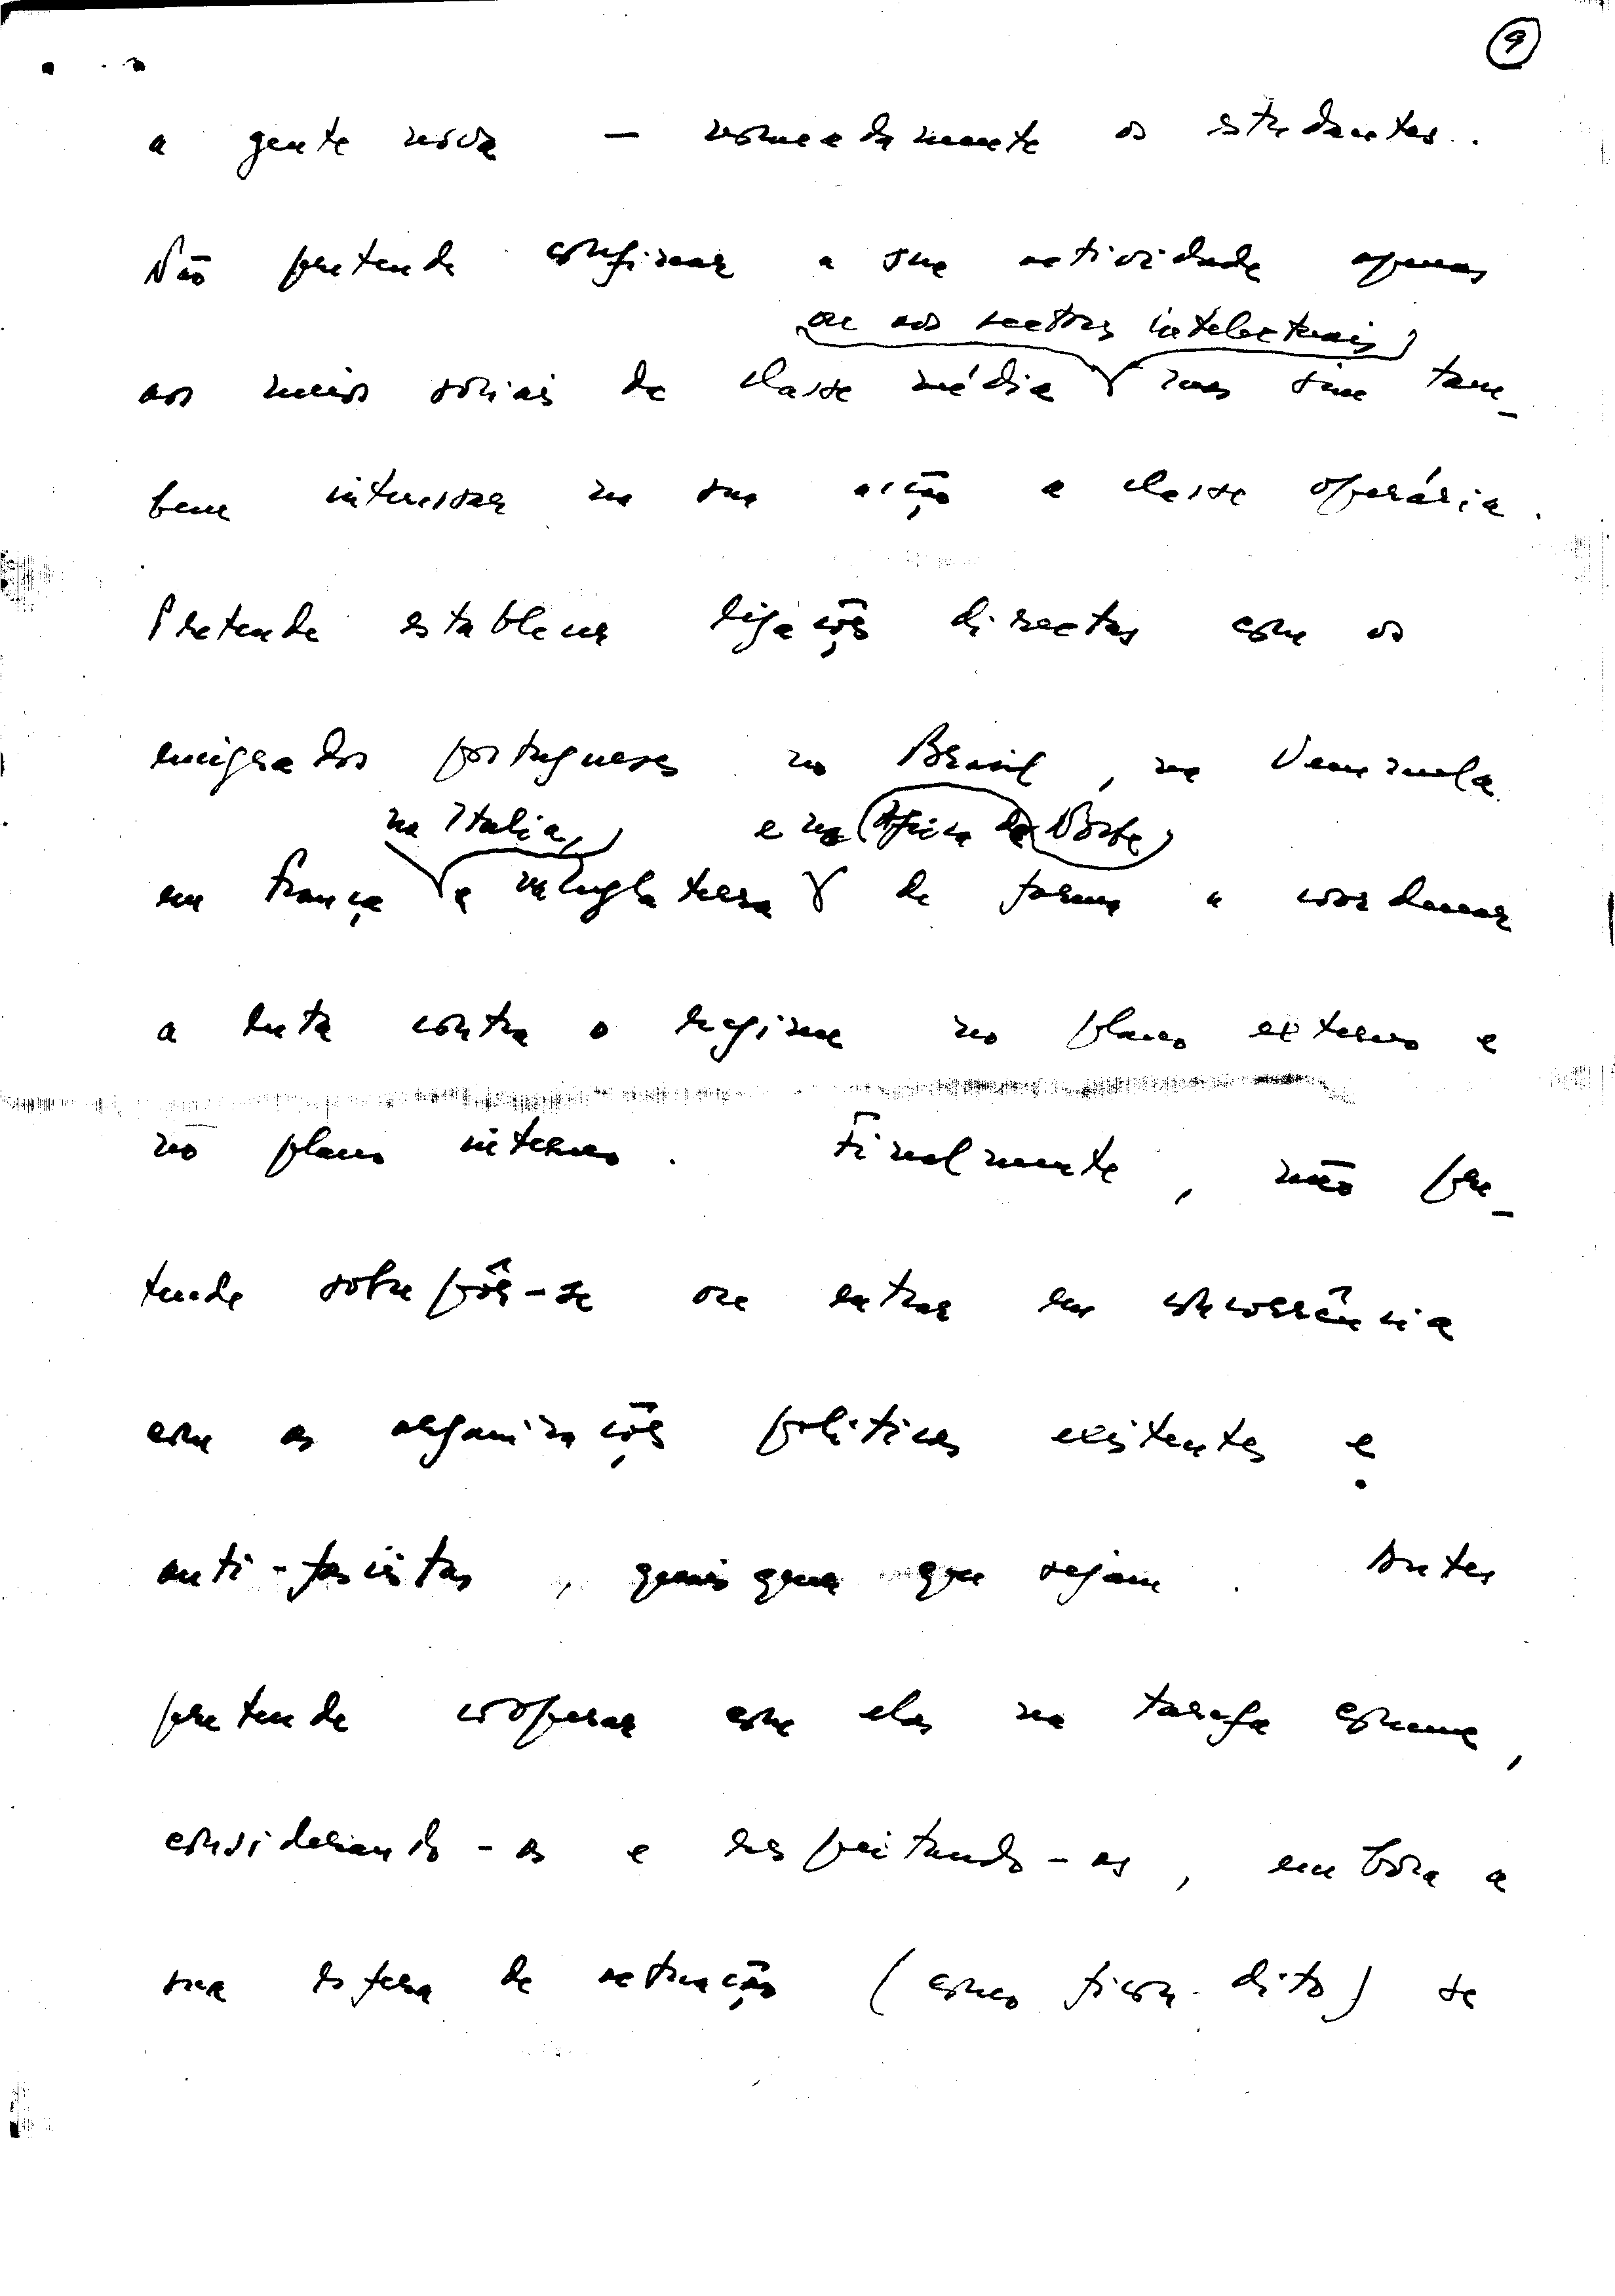 9
a gente nova — nomeadamente os estudantes.
Não pretende confinar a sua actividade apenas
ou aos sectores intelectuais
aos meios sociais da classe média mas sim tam-
bem interessar na sua acção a classe operária.
Pretende estabelecer ligações directas com os
emigrados portugueses no Brasil, na Venezuela
na Italia, e na Africa do Norte
em França e na Inglaterra de forma a coordenar
a luta contra o regime no plano externo e
no plano interno. Finalmente, não pre-
tende sobrepôr-se ou entrar em concorrência
com as organizações politicas existentes e
anti-fascistas, quaisquer que sejam. Antes
pretende cooperar com elas na tarefa comum,
considerando-as e respeitando-as, embora a
sua esfera de actuação (como ficou dito) se